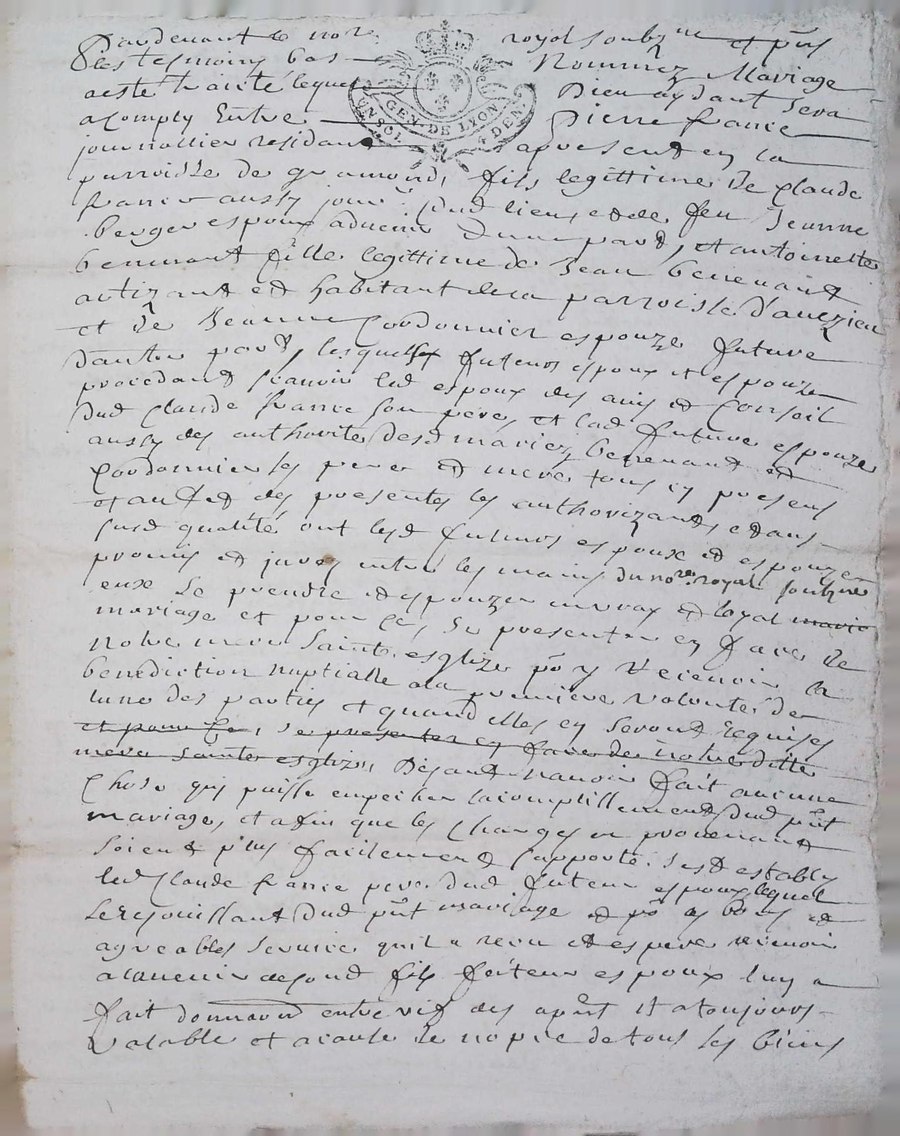 Pardevant le nore royal soubzne et pñs
les tesmoins bas Nommez Mariage
a esté traicté lequel Dieu aydant sera
acomply Entre Pierre france
journallier residant apresent en la
parroisse de gramond, fils legittime de Claude
france aussy jour dud lieu et de feu Jeanne
berger espoux advenir d'une part, et antoinette
benenant fille legittime de Jean benenant
artizant et habitant de la parroisse d'aveizieu
et de Jeanne Cordonnier espouze future
d'autre part, lesquels futeurs espoux et espouze
procedant scavoir led espoux des avis et Conseil
dud Claude france son pere, et lad future espouze
aussy des authorité desd mariez benenant et
Cordonnier les pere et mere tous en presens
et aux des presentes les authorizants, et dans
susd qualité ont lesd futeurs espoux et espouze
promis et jurés entre les mains du nore royal soubzne
eux se prendre et espouzer en vray et loyal maria
mariage et pour ce, se presenter en face de
notre mere sainte esglize pour y recevoir la
benediction nuptialle a la premiere volonté de
lune des parties et quand elles en seront requises
et pour ce, se presenter en face de notre ditte
mere sainte esglize, Disant n'avoir fait aucune
Chose qui puisse empecher lacomplissement dud pñt
mariage, et afin que les Charges en provenant
soient plus facilement suporté, sest estably
led Claude france pere dud futeur espoux lequel
se rejouissant dud pñt mariage et pour les bons et
agreables service qu'il a receu et espere recevoir
a lavenir de sond fils futeur espoux luy a
fait donnaõn entre vifs des apñt et a toujours
valable et a cause de nopce de tous les biens